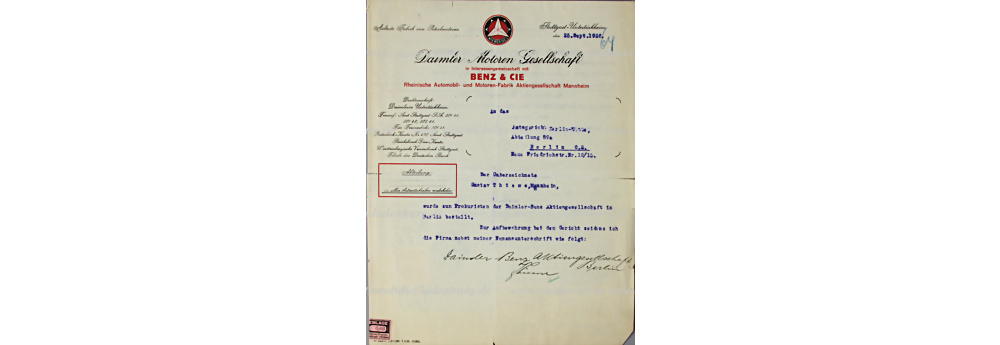 Aelteste Fabrik von
Stuttgart-Untertürkheim
den 28.Sept.1926.
64
Daimler Motoren Gesellschaft
in Interessengemeinschaft mit
BENZ & CIE
Rheinische Automobil- und Motoren-Fabrik Aktiengesellschaft Mannheim
Drahtanschrift:
Daimler Untertürkheim.
Württembergische Vereinsbank Stuttgart.
Filiale der Deutschen Bank
Abteilung
An das
Amtsgericht Berlin-Mitte,
Abteilung 89a
Berlin C.2.
Neue Friedrichstr.Nr.12/15.
Der Unterzeichnete
Gustav Thieme, Mannheim,
wurde zum Prokuristen der Daimler-Benz Aktiengesellschaft in
Berlin bestellt.
Zur Aufbewahrung bei dem Gericht zeichne ich
die Firma nebst meiner Namensunterschrift wie folgt:
Daimler Benz Aktiengesellschaft
Berlin
Thieme